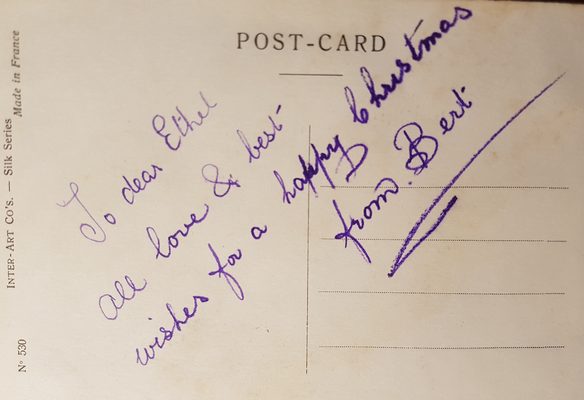 POST-CARD
To dear Ethel
all love & best
wishes for a happy Christmas
from Bert.
INTER-ART CO'S. — Silk Series
Made in France
N° 530